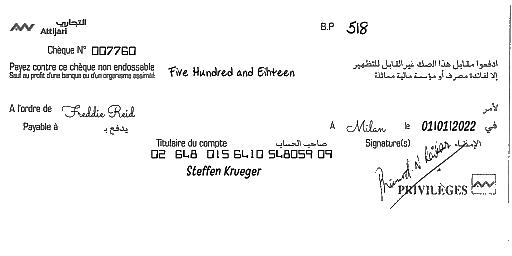 التجاري
Attijari
B.P 518
Chèque N° 007760
Payez contre ce chèque non endossable
Sauf au profit d'une banque ou d'un organisme assimilé
Five Hundred and Eihteen
ادفعوا مقابل هذا الصك غير القابل للتظهير
إلا لفائدة مصرف أو مؤسسة مالية مماثلة
A l'ordre de Freddie Reid لأمر
Payable à يدفع بـ
A Milan le 01/01/2022 في
Titulaire du compte صاحب الحساب
Signature(s) الإمضاء
02 648 015 6410 548059 09
Steffen Krueger
PRIVILÈGES